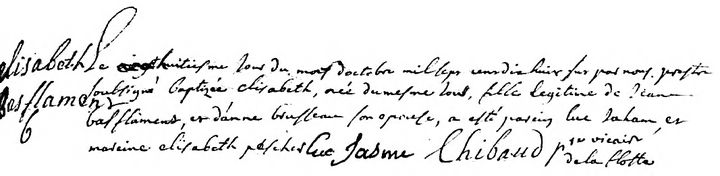 elisabeth
basflamen
6
Le huitiesme Jour du mois doctobre mil sept cens dix huit fut par nous prestre
soubsigné Baptizée elisabeth, née du mesme Jour, fille legitime de Jean
basflamens, et danne brusseau son epouse, a esté parein luc Jaham, et
mareine elisabeth pescher
luc Jasme Chibaud ptre vicaire
de la flotte